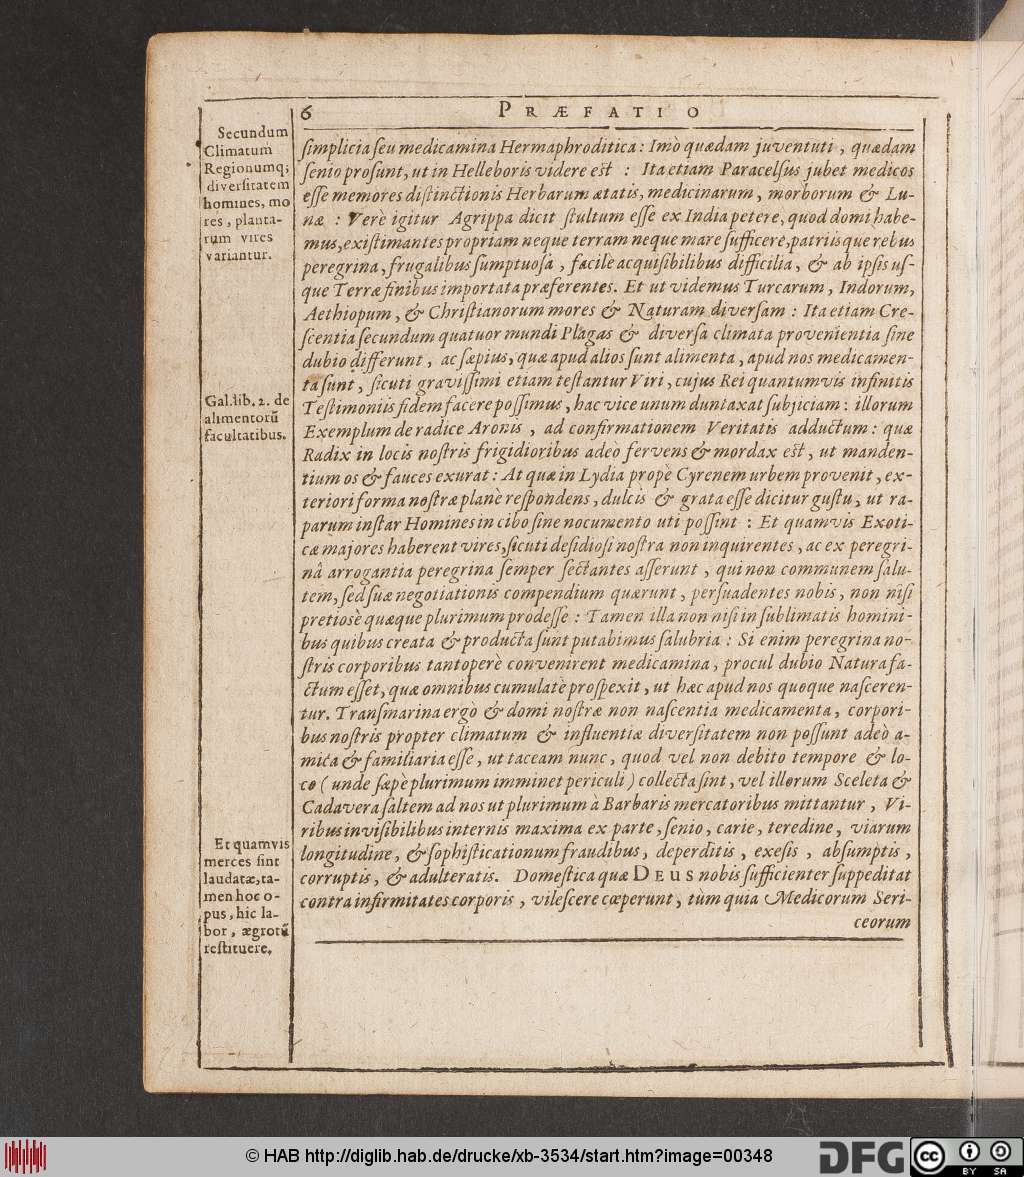 6 PRÆFATIO
Secundum
Climatum
Regionumq;
diversitatem
homines, mo
res, planta-
rum vires
variantur.
simplicia seu medicamina Hermaphroditica: Imò quædam juventuti, quædam
senio prosunt, ut in Helleboris videre est : Ita etiam Paracelsus jubet medicos
esse memores distinctionis Herbarum ætatis, medicinarum, morborum & Lu-
næ : Verè igitur Agrippa dicit stultum esse ex India petere, quod domi habe-
mus, existimantes propriam neque terram neque mare sufficere, patriisque rebus
peregrina, frugalibus sumptuosa, facile acquisibilibus difficilia, & ab ipsis us-
que Terræ finibus importata præferentes. Et ut videmus Turcarum, Indorum,
Aethiopum, & Christianorum mores & Naturam diversam : Ita etiam Cre-
scentia secundum quatuor mundi Plagas & diversa climata provenientia sine
dubio differunt, ac sæpius, quæ apud alios sunt alimenta, apud nos medicamen-
ta sunt, sicuti gravissimi etiam testantur Viri, cujus Rei quantumvis infinitis
Gal. lib. 2. de
alimentorũ
facultatibus.
Testimoniis fidem facere possimus, hac vice unum duntaxat subjiciam: illorum
Exemplum de radice Aronis, ad confirmationem Veritatis adductum: quæ
Radix in locis nostris frigidioribus adeò fervens & mordax est, ut manden-
tium os & fauces exurat: At quæ in Lydia propè Cyrenem urbem provenit, ex-
teriori forma nostræ planè respondens, dulcis & grata esse dicitur gustu, ut ra-
parum instar Homines in cibo sine nocumento uti possint : Et quamvis Exoti-
cæ majores haberent vires, sicuti desidiosi nostra non inquirentes, ac ex peregri-
nâ arrogantia peregrina semper sectantes asserunt, qui non communem salu-
tem, sed suæ negotiationis compendium quærunt, persuadentes nobis, non nisi
pretiosè quæque plurimum prodesse : Tamen illa non nisi in sublimatis homini-
bus quibus creata & producta sunt putabimus salubria : Si enim peregrina no-
stris corporibus tantoperè convenirent medicamina, procul dubio Natura fa-
ctum esset, quæ omnibus cumulatè prospexit, ut hæc apud nos quoque nasceren-
tur. Transmarina ergò & domi nostræ non nascentia medicamenta, corpori-
bus nostris propter climatum & influentiæ diversitatem non possunt adeò a-
mica & familiaria esse, ut taceam nunc, quod vel non debito tempore & lo-
co ( unde sæpè plurimum imminet periculi ) collecta sint, vel illorum Sceleta &
Cadavera saltem ad nos ut plurimum à Barbaris mercatoribus mittantur, Vi-
ribus invisibilibus internis maxima ex parte, senio, carie, teredine, viarum
Et quamvis
merces sint
laudatæ, ta-
men hoc o-
pus, hic la-
bor, ægrotũ
restituere.
longitudine, & sophisticationum fraudibus, deperditis, exesis, absumptis,
corruptis, & adulteratis. Domestica quæ DEUS nobis sufficienter suppeditat
contra infirmitates corporis, vilescere cœperunt, tùm quia Medicorum Seri-
ceorum
© HAB http://diglib.hab.de/drucke/xb-3534/start.htm?image=00348
DFG
cc BY SA